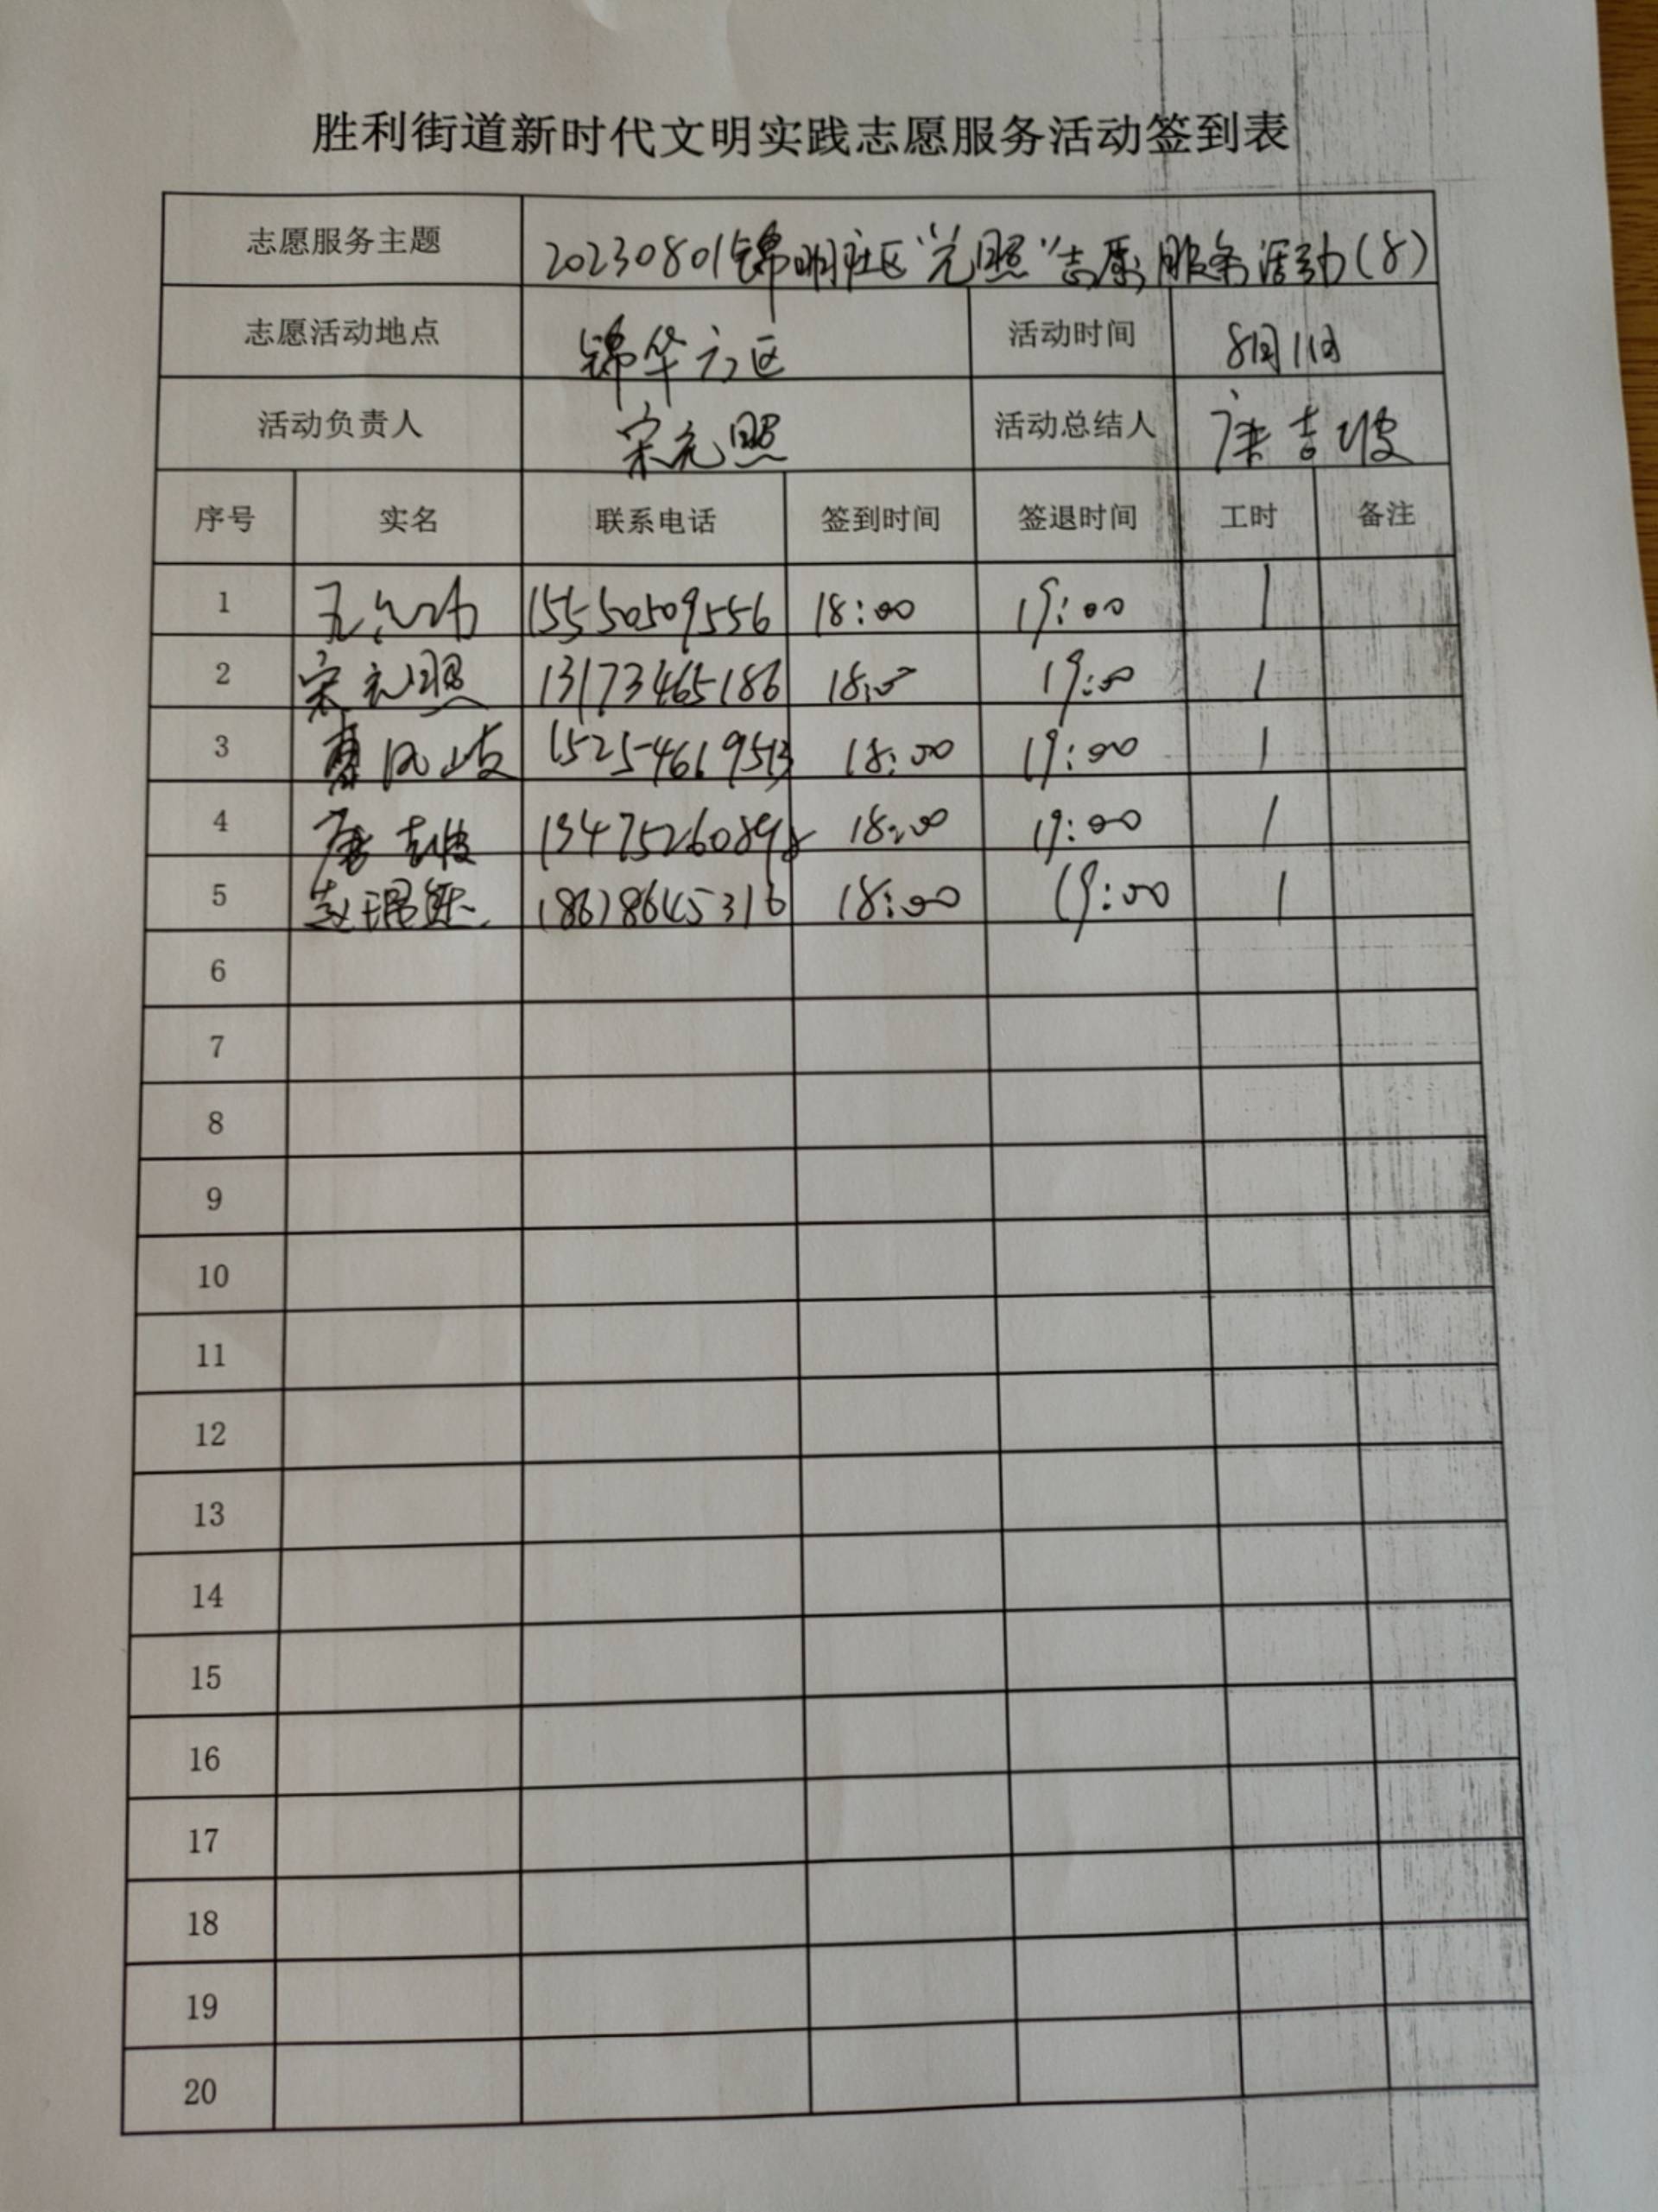 胜利街道新时代文明实践志愿服务活动签到表
志愿服务主题 20230801锦明社区“元照”志愿服务活动(8)
志愿活动地点 锦华六区 活动时间 8月1日
活动负责人 宋元照 活动总结人 唐吉坡
序号 实名 联系电话 签到时间 签退时间 工时 备注
1 15550509556 18:00 19:00 1
2 宋元照 13173465186 18:00 19:00 1
3 15254619513 18:00 19:00 1
4 唐吉坡 18:00 19:00 1
5 18678645316 18:00 19:00 1
6
7
8
9
10
11
12
13
14
15
16
17
18
19
20